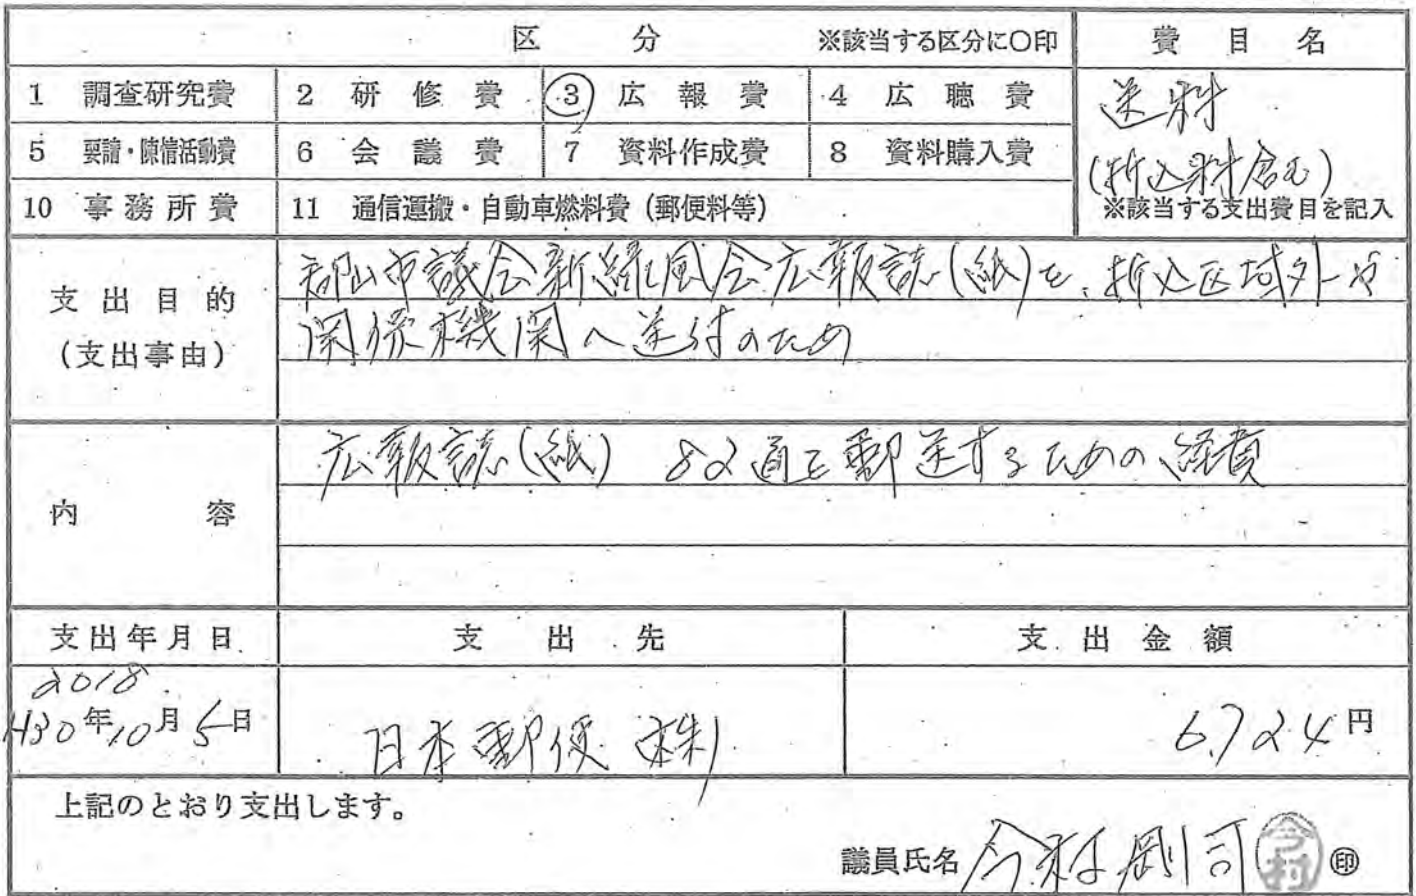 区 分 ※該当する区分に○印 費 目 名
1 調査研究費 2 研 修 費 3 広 報 費 4 広 聴 費
送料
5 要請・陳情活動費 6 会 議 費 7 資料作成費 8 資料購入費
(折込料含む)
10 事務所費 11 通信運搬・自動車燃料費(郵便料等)
※該当する支出費目を記入
支 出 目 的
(支出事由)
郡山市議会新緑風会広報誌(紙)を、折込区域外や
関係機関へ送付のため
内 容
広報誌(紙) 82通を郵送するための経費
支出年月日 支 出 先 支 出 金 額
2018.
H30年10月5日 日本郵便(株) 6,724円
上記のとおり支出します。
議員氏名 今村剛司 今村 ㊞